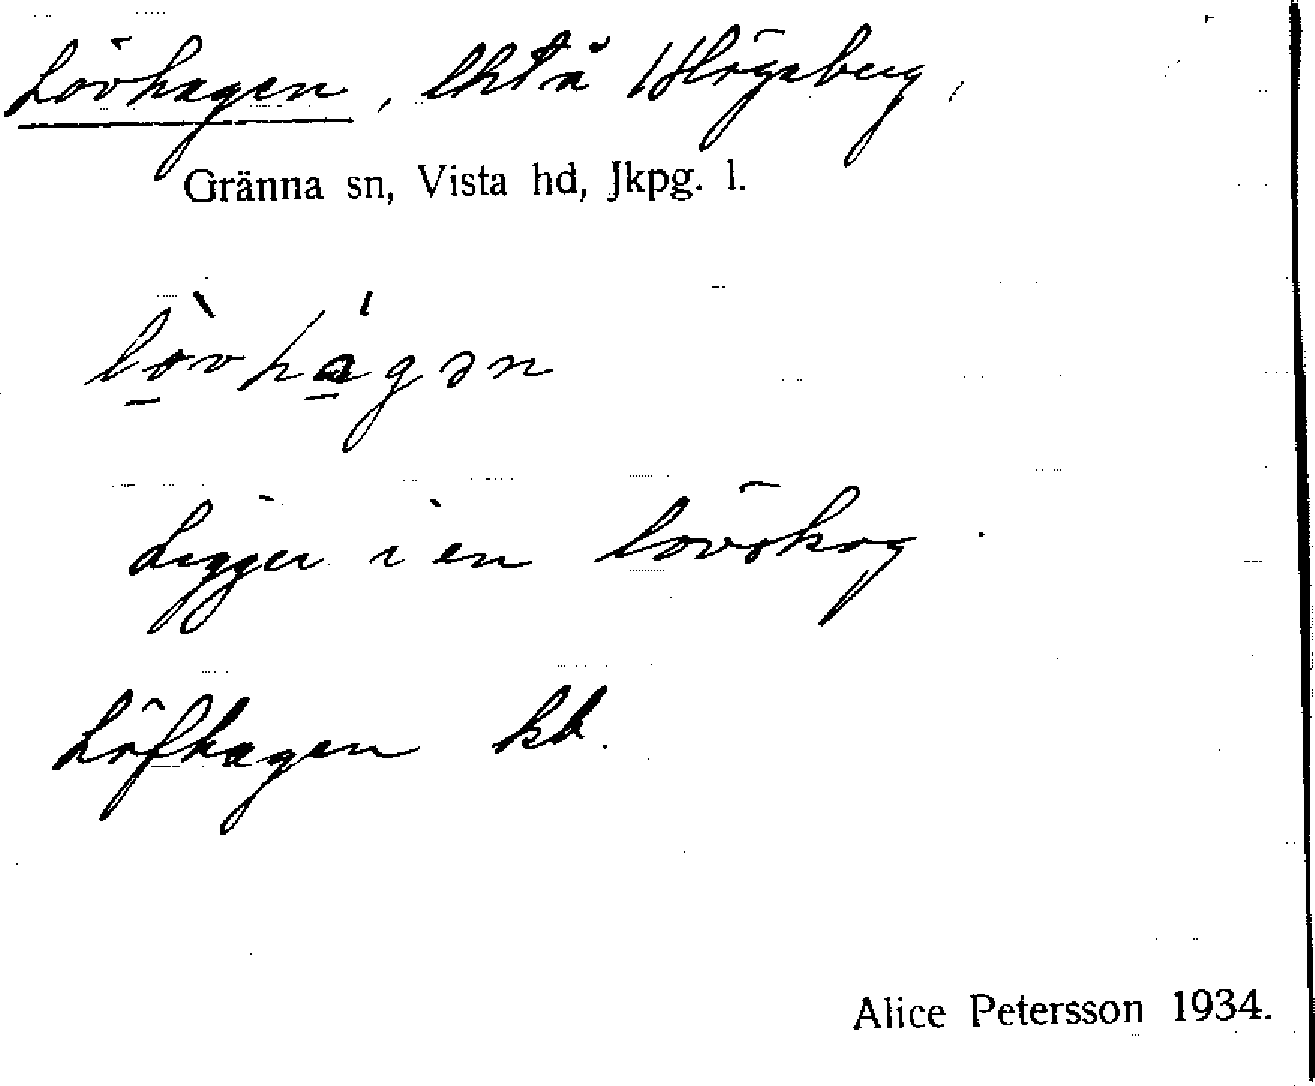 Lövhagen, lht å Högaberg,
Gränna sn, Vista hd, Jkpg. l.
lòvhágən
Ligger i en lövskog.
Löfhagen kb.
Alice Petersson 1934.